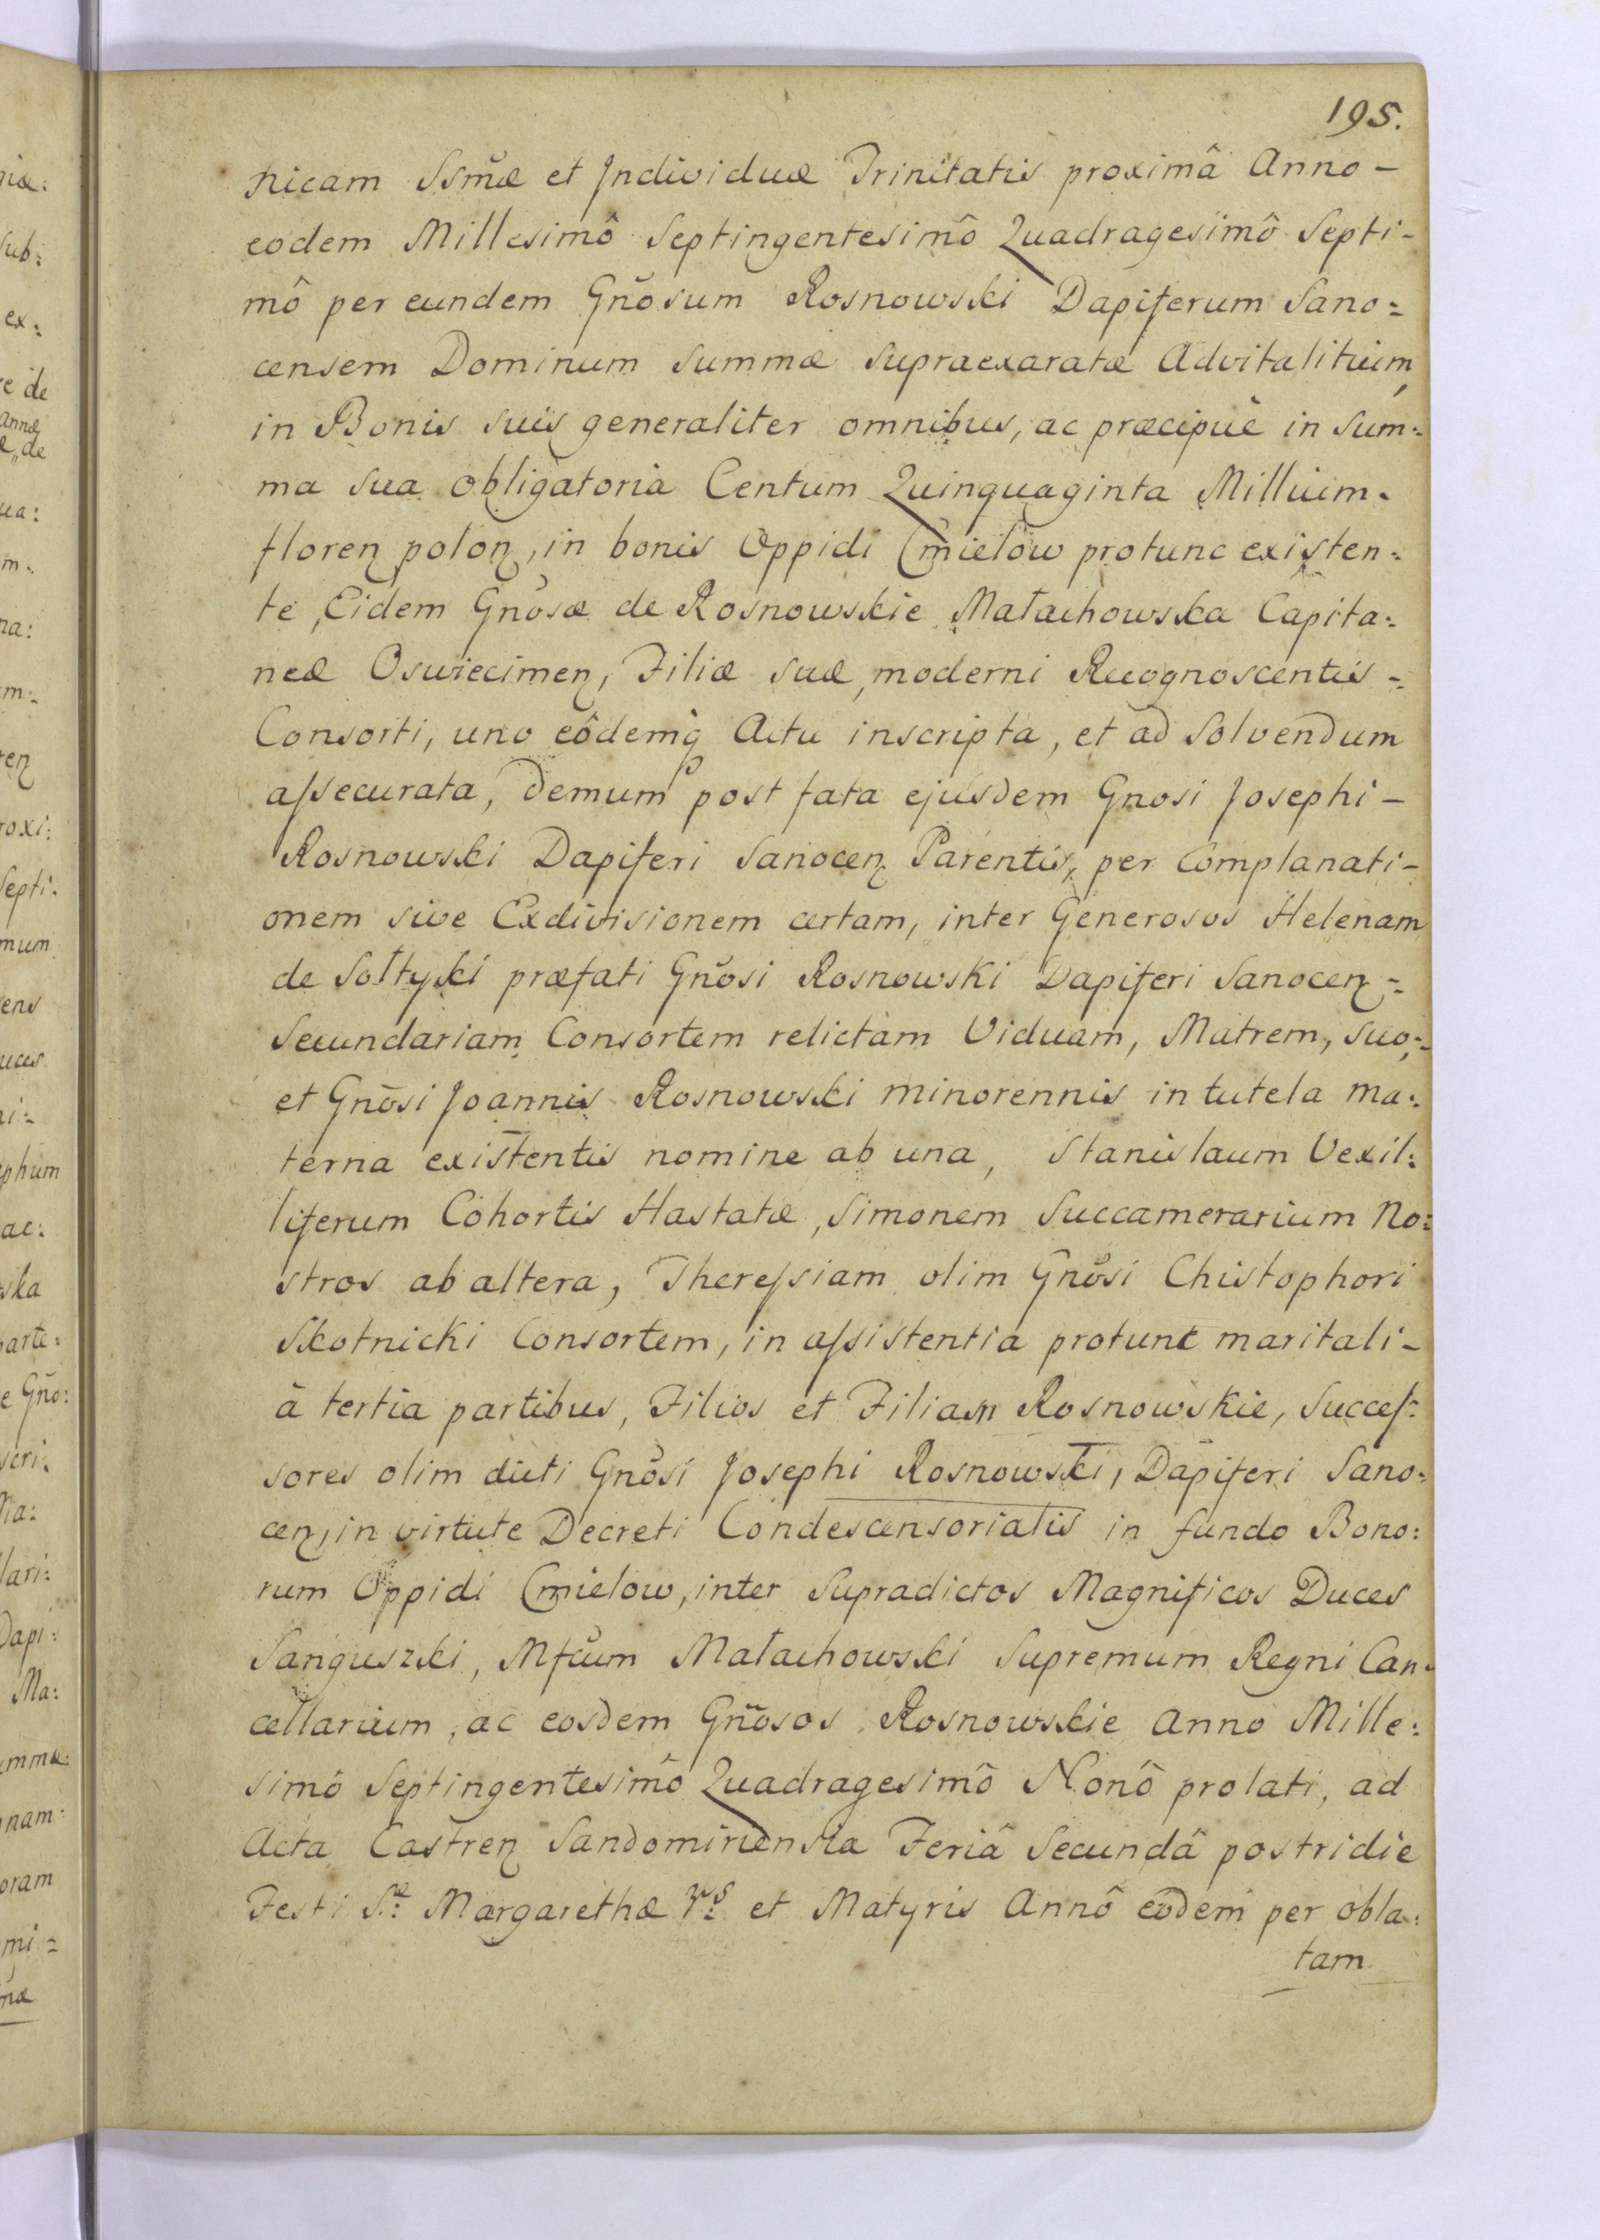 195.
nicam Ssmæ et Individuæ Trinitatis proximâ Anno –
eodem Millesimô Septingentesimô Quadragesimô Septi-
mô per eundem Gñosum Rosnowski Dapiferum Sano=
censem Dominum Summæ supraexaratæ Advitalitium,
in Bonis suis generaliter omnibus, ac præcipuè in Sum-
ma sua obligatoria Centum Quinquaginta Millium.
floren polon, in bonis Oppidi Cmielow protunc existen-
te, Eidem Gñosæ de Rosnowskie Małachowska Capita:
neæ Oswiecimen, Filiæ suæ, moderni Recognoscentis -
Consorti, uno eôdemq Actu inscripta, et ad Solvendum
assecurata, demum post fata ejusdem Gnosi Josephi –
Rosnowski Dapiferi Sanocen Parentis, per Complanati-
onem sive Exdivisionem certam, inter Generosos Helenam
de Sołtyki præfati Gñosi Rosnowski Dapiferi Sanocen =
Secundariam Consortem relictam Viduam, Matrem, suo;
et Gñosi Joannis Rosnowski minorennis in tutela ma:
terna existentis nomine ab una, Stanislaum Vexil:
liferum Cohortis Hastatæ, Simonem Succamerarium No:
stros ab altera, Theressiam olim Gñosi Chistophori
Skotnicki Consortem, in assistentia protunc maritali-
à tertia partibus, Filios et Filiam Rosnowskie, Succes:
sores olim dicti Gñosi Josephi Rosnowski, Dapiferi Sano:
cen, in virtute Decreti Condescensorialis in fundo Bono:
rum Oppidi Cmielow, inter Supradictos Magnificos Duces
Sanguszki, Mfcum Małachowski Supremum Regni Can-
cellarium, ac eosdem Gñosos Rosnowskie Anno Mille:
simô Septingentesimô Quadragesimô Nonô prolati, ad
Acta Castren Sandomiriensia Feriâ Secundâ postridie
Festi S.æ Margarethæ V.s et Matyris Annô eôdem per obla:
tam